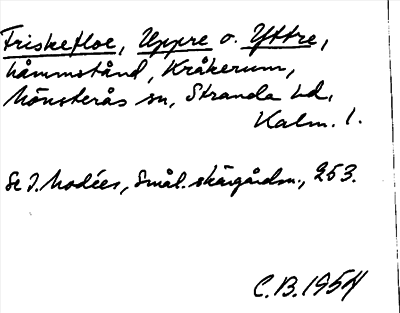 Frisketloe, Uppre o. Yttre,
håmmstånd, Kråkerum,
Mönsterås sn, Stranda hd,
Kalm. l.
Se I. Modéer, Smål. skärgårdsn., 253.
C.B. 1954